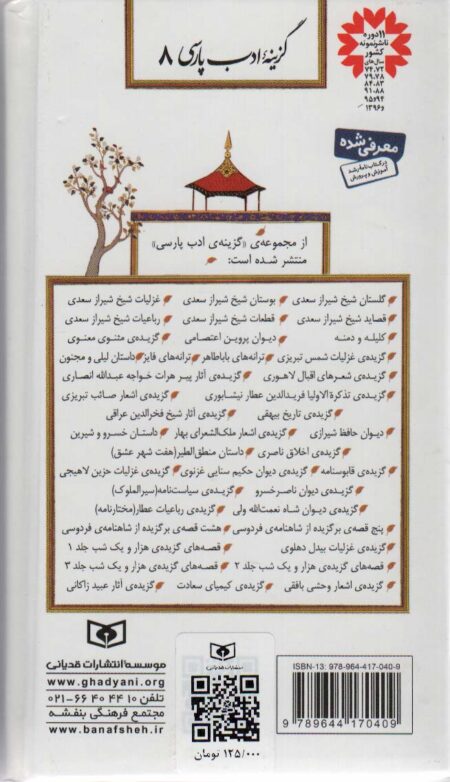 گزینهٔ ادب پارسی ۸
۱۱ دوره
ناشر نمونه
کشور
سال‌های
۷۴،۷۲
۷۹،۷۸
۸۴،۸۳
۹۱،۸۸
۹۴و۹۵
و۱۳۹۶
معرفی شده
در کتاب‌نامه رشد
آموزش و پرورش
از مجموعه‌ی «گزینه‌ی ادب پارسی»
منتشر شده است:
گلستان شیخ شیراز سعدی بوستان شیخ شیراز سعدی غزلیات شیخ شیراز سعدی
قصاید شیخ شیراز سعدی قطعات شیخ شیراز سعدی رباعیات شیخ شیراز سعدی
کلیله و دمنه دیوان پروین اعتصامی گزیده‌ی مثنوی معنوی
گزیده‌ی غزلیات شمس تبریزی ترانه‌های باباطاهر ترانه‌های فایز داستان لیلی و مجنون
گزیده‌ی شعرهای اقبال لاهوری گزیده‌ی آثار پیر هرات خواجه عبدالله انصاری
گزیده‌ی تذکرة الاولیا فریدالدین عطار نیشابوری گزیده‌ی اشعار صائب تبریزی
گزیده‌ی تاریخ بیهقی گزیده‌ی آثار شیخ فخرالدین عراقی
دیوان حافظ شیرازی گزیده‌ی اشعار ملک‌الشعرای بهار داستان خسرو و شیرین
گزیده‌ی اخلاق ناصری داستان منطق‌الطیر(هفت شهر عشق)
گزیده‌ی قابوسنامه گزیده‌ی دیوان حکیم سنایی غزنوی گزیده‌ی غزلیات حزین لاهیجی
گزیده‌ی دیوان ناصرخسرو گزیده‌ی سیاست‌نامه(سیرالملوک)
گزیده‌ی دیوان شاه نعمت‌الله ولی گزیده‌ی رباعیات عطار(مختارنامه)
پنج قصه‌ی برگزیده از شاهنامه‌ی فردوسی هشت قصه‌ی برگزیده از شاهنامه‌ی فردوسی
گزیده‌ی غزلیات بیدل دهلوی قصه‌های گزیده‌ی هزار و یک شب جلد ۱
قصه‌های گزیده‌ی هزار و یک شب جلد ۲ قصه‌های گزیده‌ی هزار و یک شب جلد ۳
گزیده‌ی اشعار وحشی بافقی گزیده‌ی کیمیای سعادت گزیده‌ی آثار عبید زاکانی
موسسه انتشارات قدیانی
www.ghadyani.org
تلفن ۱۰ ۴۴ ۴۰ ۶۶-۰۲۱
مجتمع فرهنگی بنفشه
www.banafsheh.ir
انتشارات قدیانی
۱۲۵/۰۰۰ تومان
ISBN-13: 978-964-417-040-9
9 789644 170409